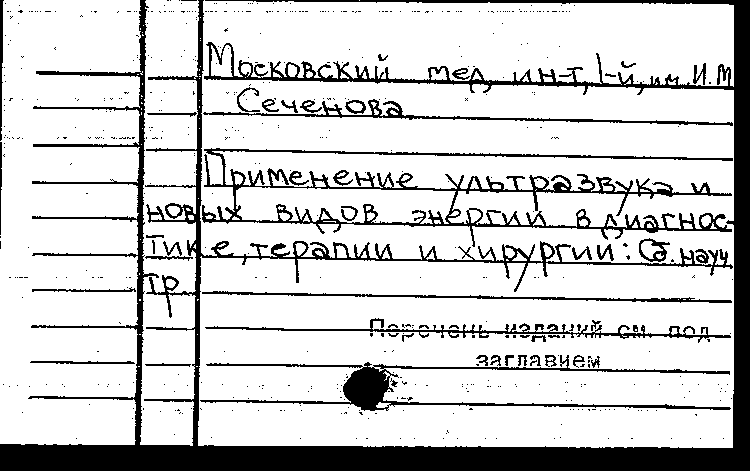 Московский мед. ин-т, 1-й, им. И.М
Сеченова
Применение ультразвука и
новых видов энергии в диагнос-
тике, терапии и хирургии: Сб. науч
тр
Перечень изданий см. под
заглавием